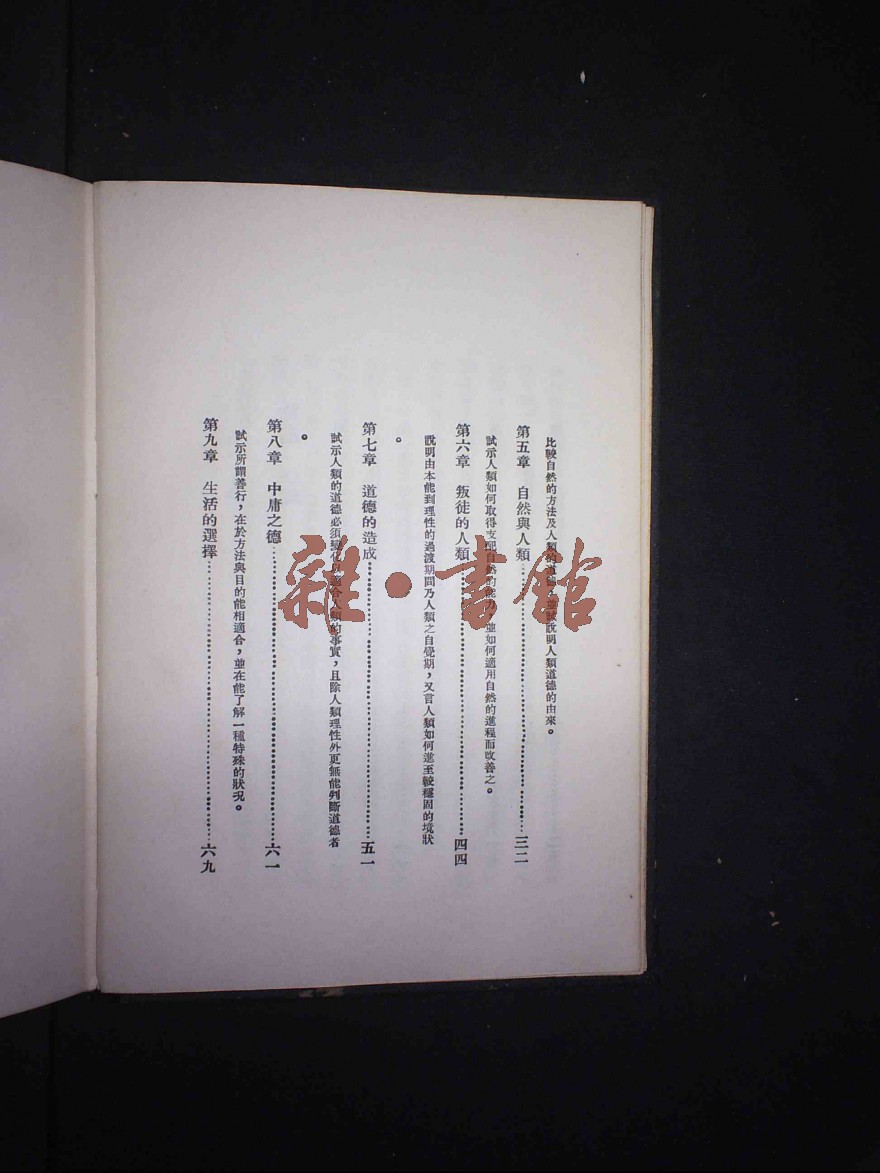 比較自然的方法及人類的道德,並試說明人類道德的由來。
第五章 自然與人類……三二
試示人類如何取得支配自然的能力,並如何適用自然的進程而改善之。
第六章 叛徒的人類……四四
說明由本能到理性的過渡期間乃人類之自覺期,又言人類如何進至較穩固的境狀
。
第七章 道德的造成……五一
試示人類的道德必須變化以適合人類的事實,且除人類理性外更無能判斷道德者
。
第八章 中庸之德……六一
試示所謂善行,在於方法與目的能相適合,並在能了解一種特殊的狀況。
第九章 生活的選擇……六九
雜·書館